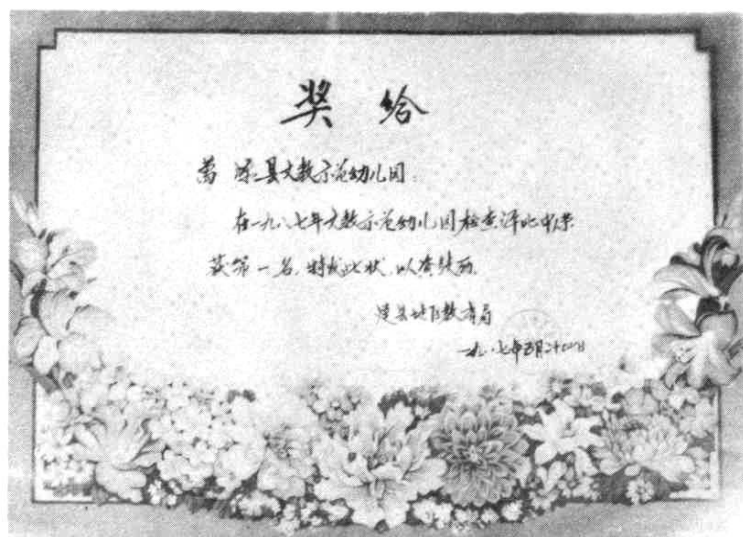 奖给
萬源县文教示范幼儿园:
在一九八七年文教示范幼儿园检查评比中荣
获第一名,特发此状,以资鼓励。
达县地区教育局
一九八七年五月二十四日